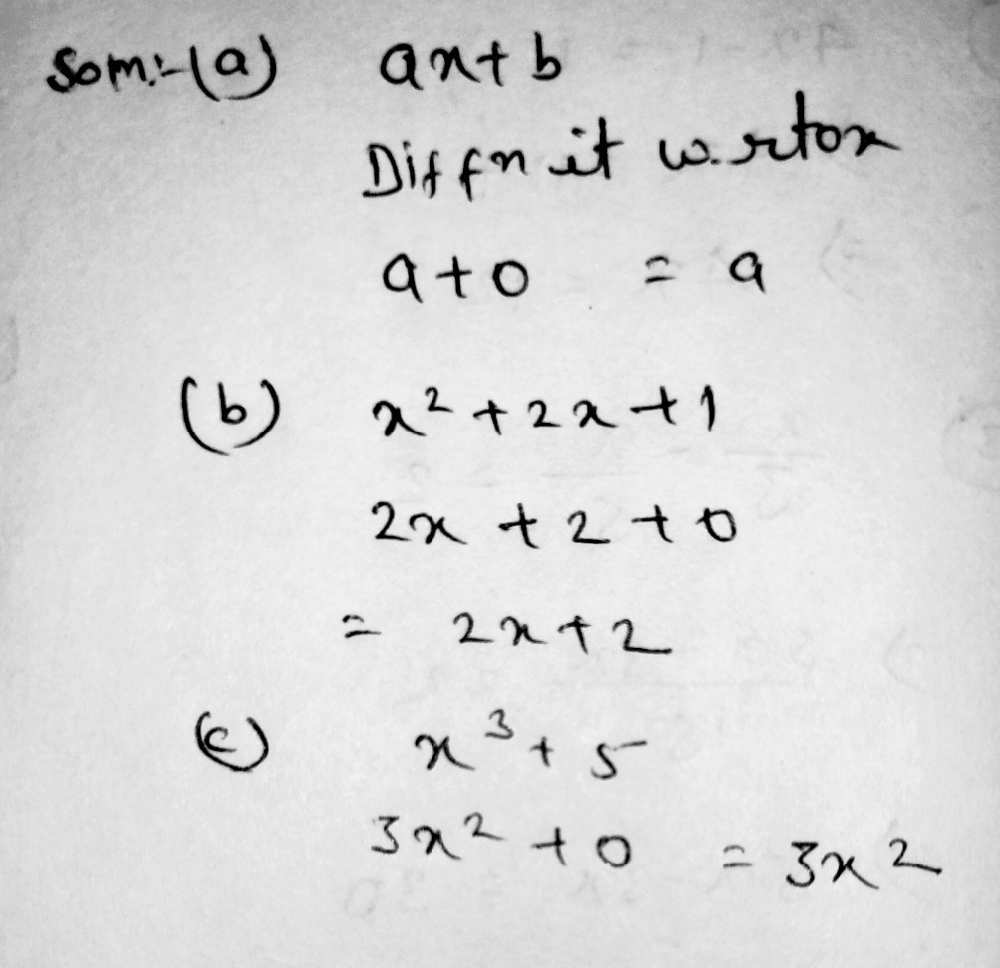 Som:-(a) ax+b
Diffn it w.r to x
a+0 = a
(b) x²+2x+1
2x+2+0
= 2x+2
(c) x³+5
3x²+0 = 3x²